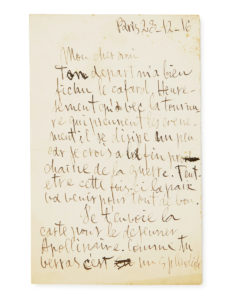 Paris 28-12-16
Mon cher ami
Ton depart m'a bien
fichu le cafard. Heure-
sement qu'avec la tournu-
re qui prennent les evene-
ments il se disipe un peu
car je crois a la fin pro-
chaine de la guerre. Peut-
etre cette fois-ci la paix
va venir pour tout de bon.
Je t'envoie la
carte pour le dejeuner
Apollinaire. Comme tu
verras c'est un splendide